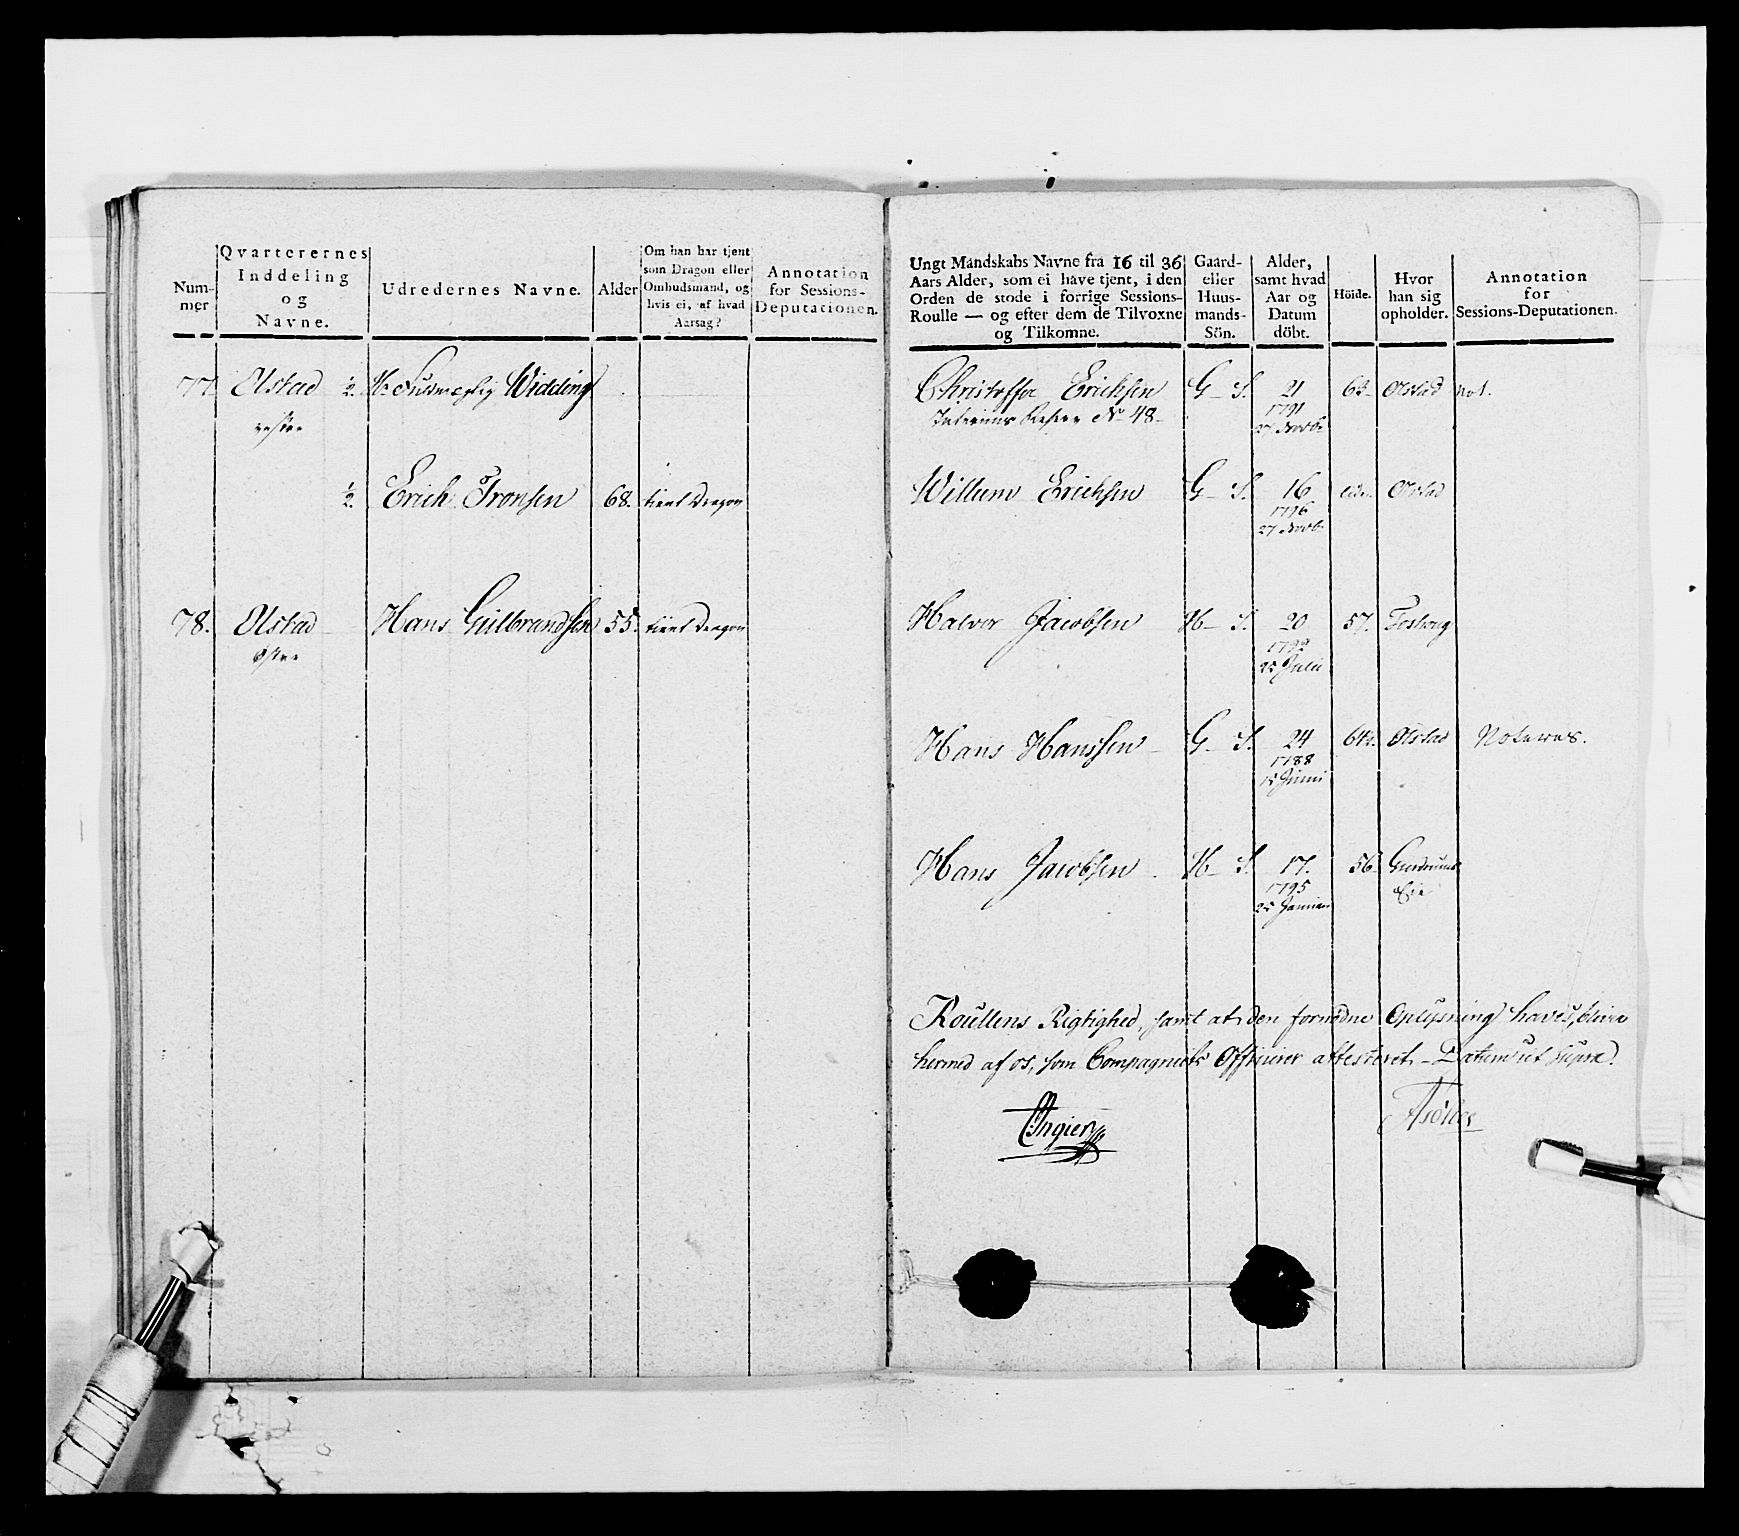 Num-
mer
Qvarterernes
Inddeling
og
Navne.
Udredernes Navne.
Alder
Om han har tjent
som Dragon eller
Ombudsmand, og
hvis ei, af hvad
Aarsag?
Annotation
for Sessions-
Deputationen.
77. Olstad ½. Hr. Widding
vestre
½. Erich Tronsen 68. tient Dragon
78. Olstad Hans Gulbrandsen 55. tient Dragon
østre
Ungt Mandskabs Navne fra 16 til 36
Aars Alder, som ei have tjent, i den
Orden de stode i forrige Sessions-
Roulle — og efter dem de Tilvoxne
og Tilkomne.
Gaard-
eller
Huus-
mands-
Sön.
Alder,
samt hvad
Aar og
Datum
döbt.
Höide.
Hvor
han sig
opholder.
Annotation
for
Sessions-Deputationen.
Christoffer Erichsen G - S. 21 Olstad not.
Interims Reserv No 48 1791
27 Novb.
Willum Erichsen G - S. 16 Olstad
1796
27 Novb.
Halvor Jacobsen H - S. 20 57.
1792
25 Julii
Hans Hanssen G - S. 24 64½. Olstad Noteres.
1788
15 Junii
Hans Jacobsen H - S. 17. 56
1795 Eie
25 Januar
Roullens Rigtighed, samt at den fornødne Oplysning haves, blive
hermed af os, som Compagniets Officierer attesteret. Datum ut supra.
Angier